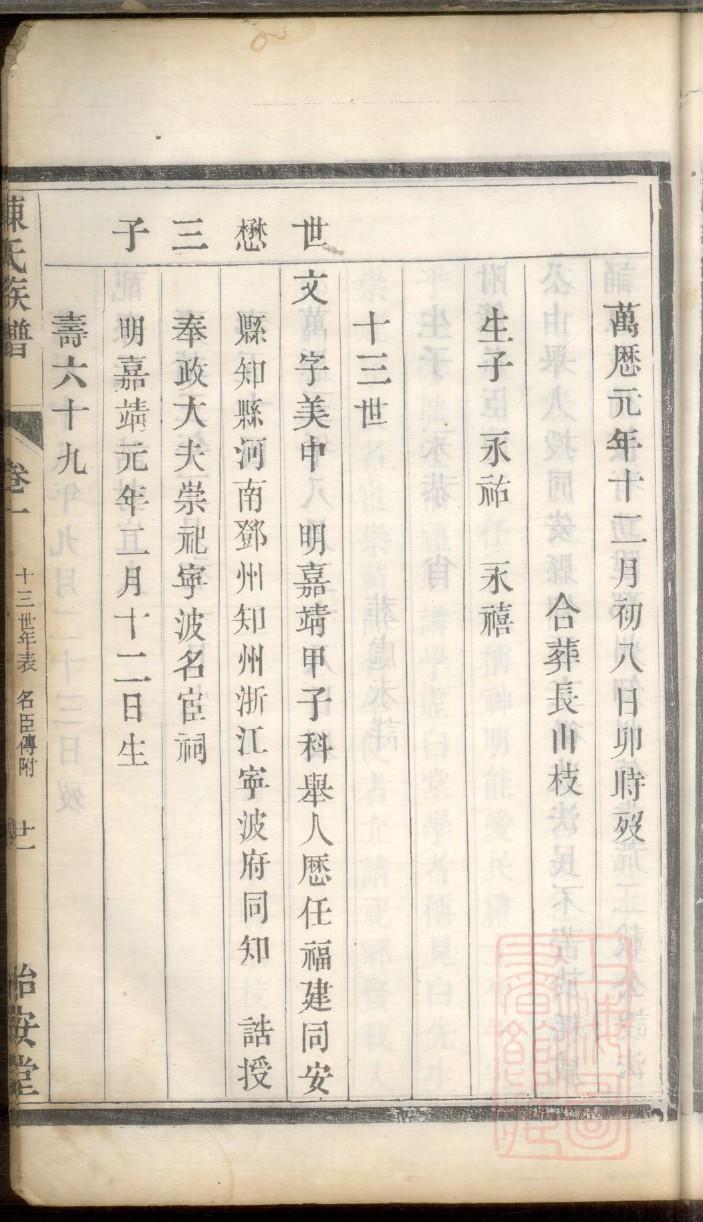 萬厯元年十二月初八日卯時歿
合葬長山枝
生子 永祐 永禧
十三世
世懋三子
文 字美中 明嘉靖甲子科舉人厯任福建同安
縣知縣河南鄧州知州浙江寧波府同知 誥授
奉政大夫崇祀寧波名宦祠
明嘉靖元年二月十二日生
壽六十九
陳氏族譜
卷一
十三世年表 名臣傳附
十一
怡安堂